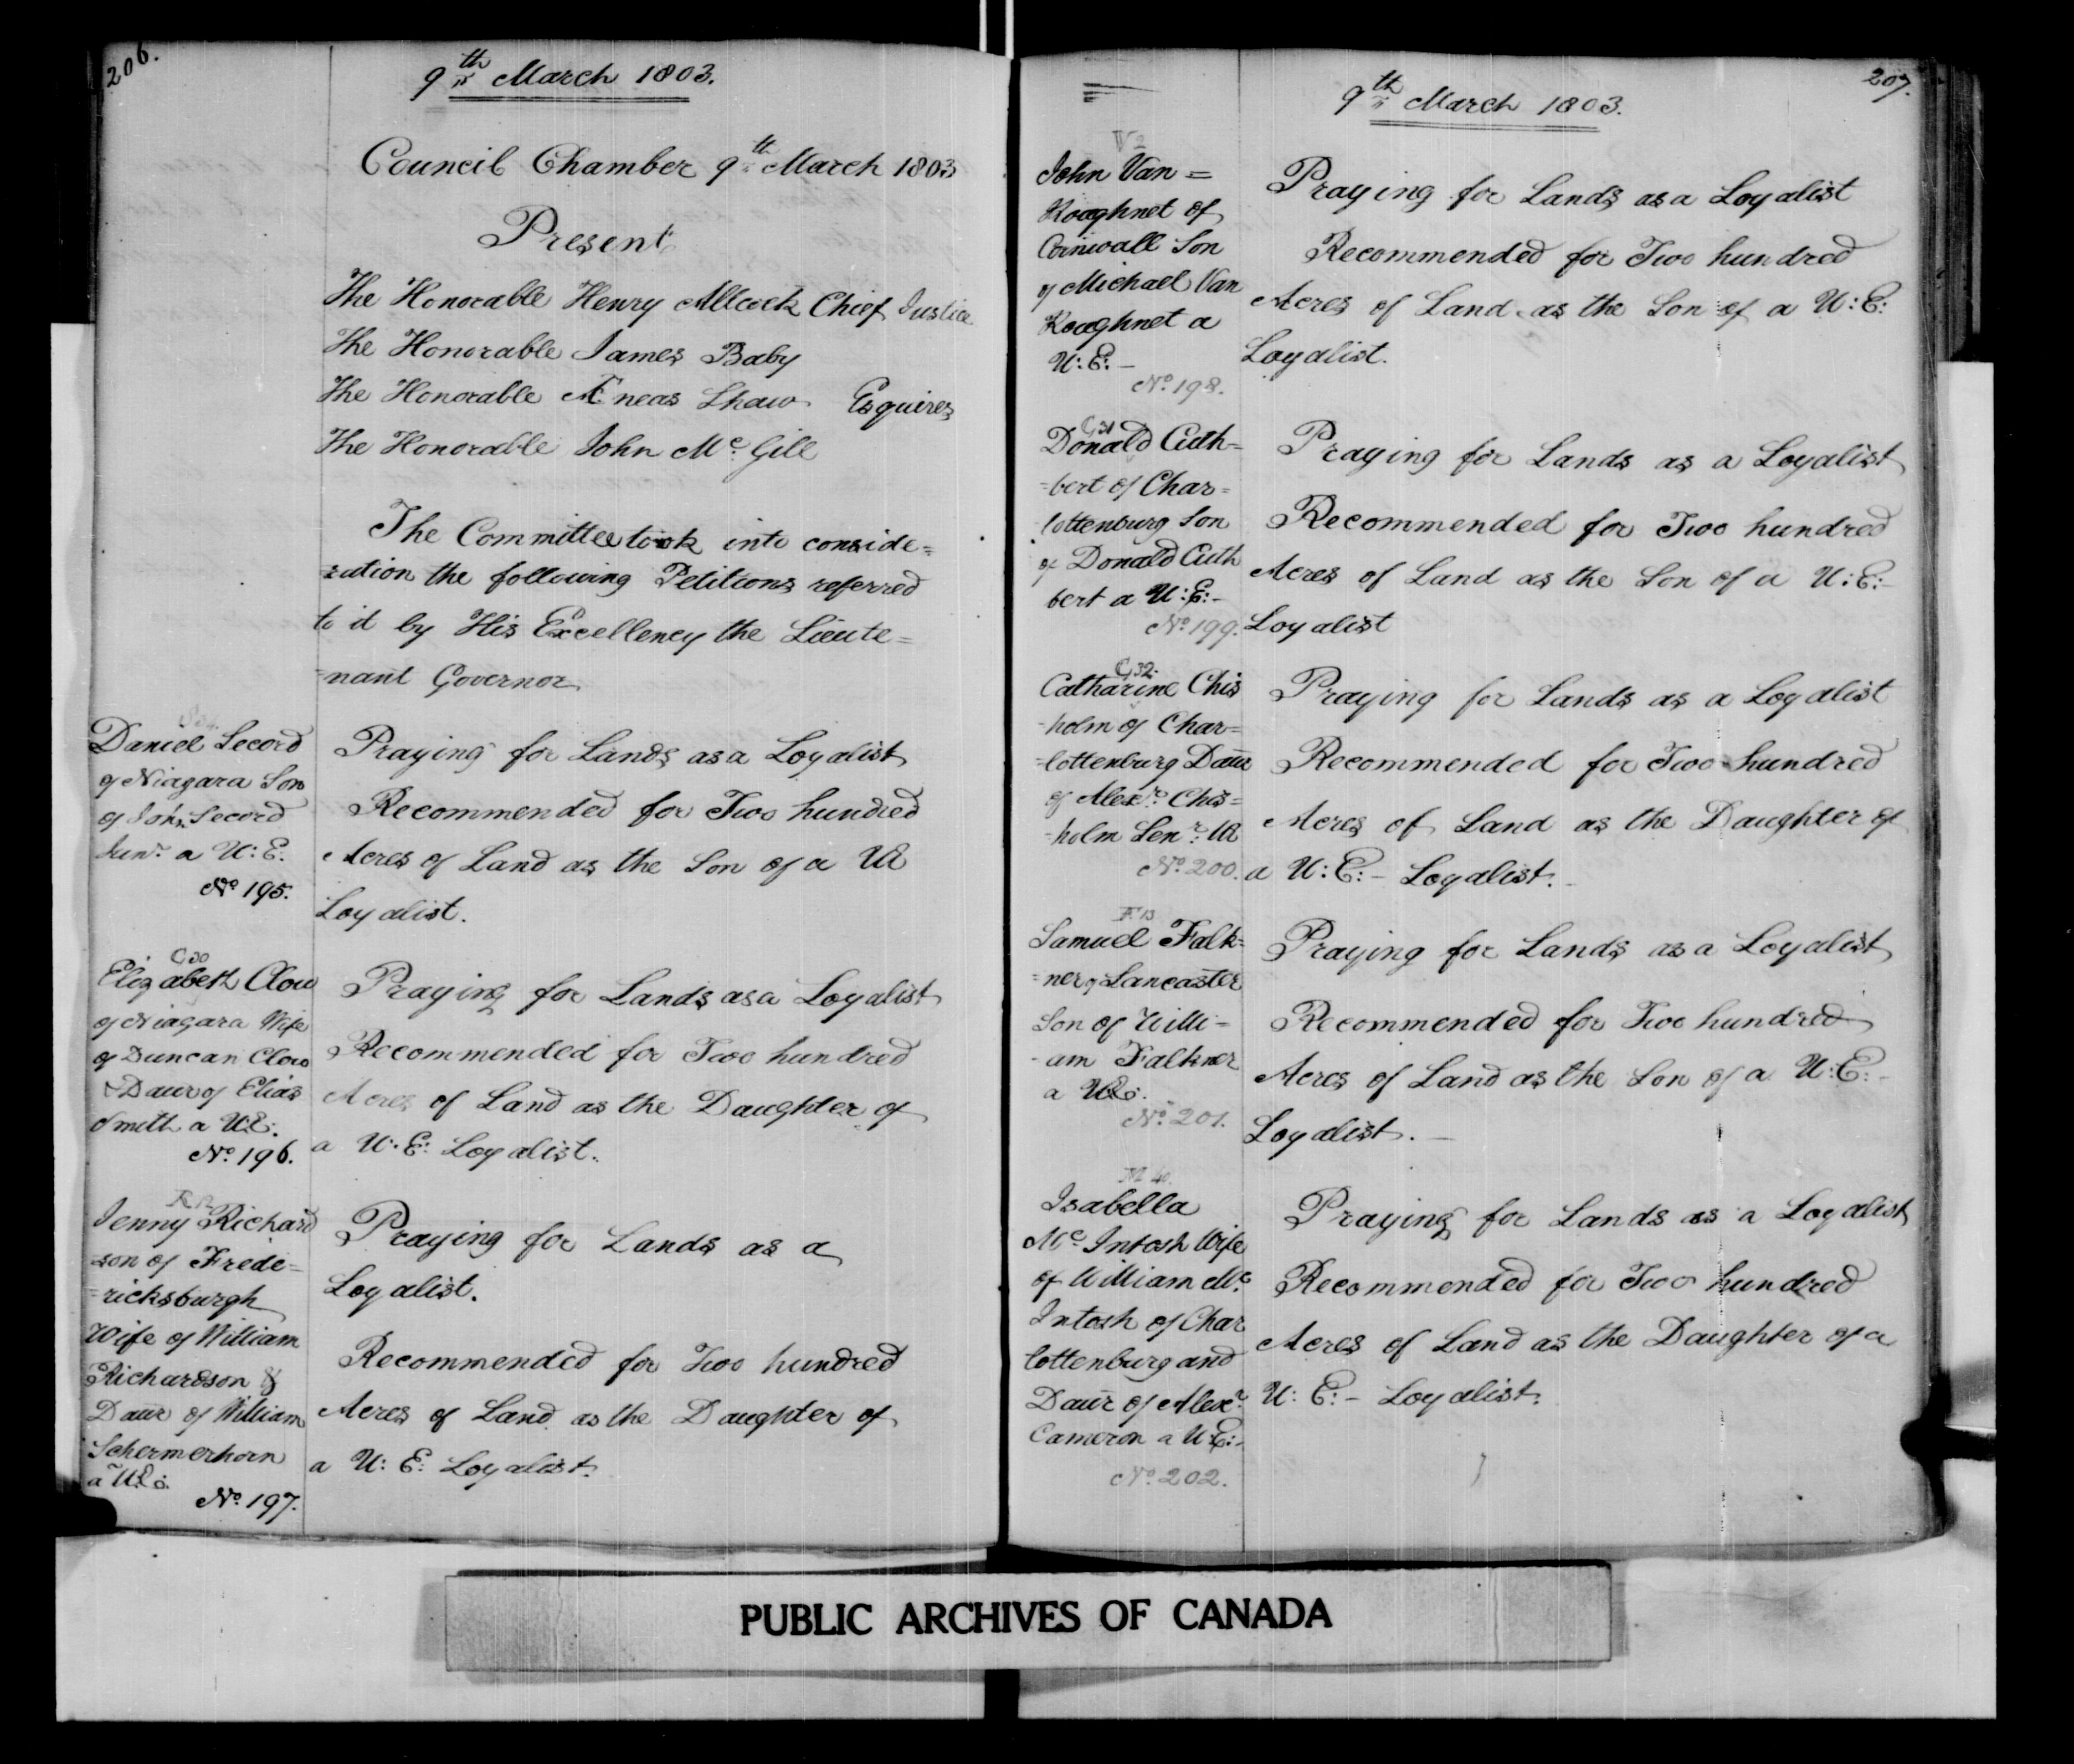 206.
9th March 1803.
Council Chamber 9th March 1803
Present
The Honorable Henry Allcock Chief Justice
The Honorable James Baby
The Honorable Æneas Shaw Esquires
The Honorable John Mc Gill
The Committee took into conside=
=ration the following Petitions referred
to it by His Excellency the Lieute=
=nant Governor
Daniel Secord
of Niagara Son
of John Secord
Junr. a U: E.
No. 195.
Praying for Lands as a Loyalist
Recommended for Two hundred
Acres of Land as the Son of a UE
Loyalist.
C 30
Elizabeth Clow
of Niagara Wife
of Duncan Clow
& Daur of Elias
Smith a UE:
No. 196.
Praying for Lands as a Loyalist
Recommended for Two hundred
Acres of Land as the Daughter of
a U: E: Loyalist.
Jenny Richard
=son of Frede=
=ricksburgh
Wife of William
Richardson &
Daur of William
Schermerhorn
a UE:
No. 197.
Praying for Lands as a
Loyalist.
Recommended for Two hundred
Acres of Land as the Daughter of
a U: E: Loyalist.
207.
9th March 1803.
V 2
John Van=
Koughnet of
Cornwall Son
of Michael Van
Koughnet a
U: E: –
No. 198.
Praying for Lands as a Loyalist
Recommended for Two hundred
Acres of Land as the Son of a U: E:
Loyalist.
C 31
Donald Cuth=
=bert of Char=
lottenburg Son
of Donald Cuth
bert a U: E: –
No. 199.
Praying for Lands as a Loyalist
Recommended for Two hundred
Acres of Land as the Son of a U: E: –
Loyalist
C 32.
Catharine Chis
=holm of Char=
=lottenburg Daur
of Alexr. Chis=
=holm Senr. UE
No. 200.
Praying for Lands as a Loyalist
Recommended for Two hundred
Acres of Land as the Daughter of
a U: E: – Loyalist. –
F 13
Samuel Falk=
=ner of Lancaster
Son of Willi=
=am Falkner
a UE:
No. 201.
Praying for Lands as a Loyalist
Recommended for Two hundred
Acres of Land as the Son of a U: E: –
Loyalist. –
M 40.
Isabella
Mc Intosh Wife
of William Mc
Intosh of Char
lottenburg and
Daur of Alexr.
Cameron a U: E: –
No. 202.
Praying for Lands as a Loyalist
Recommended for Two hundred
Acres of Land as the Daughter of a
U: E: – Loyalist.
PUBLIC ARCHIVES OF CANADA